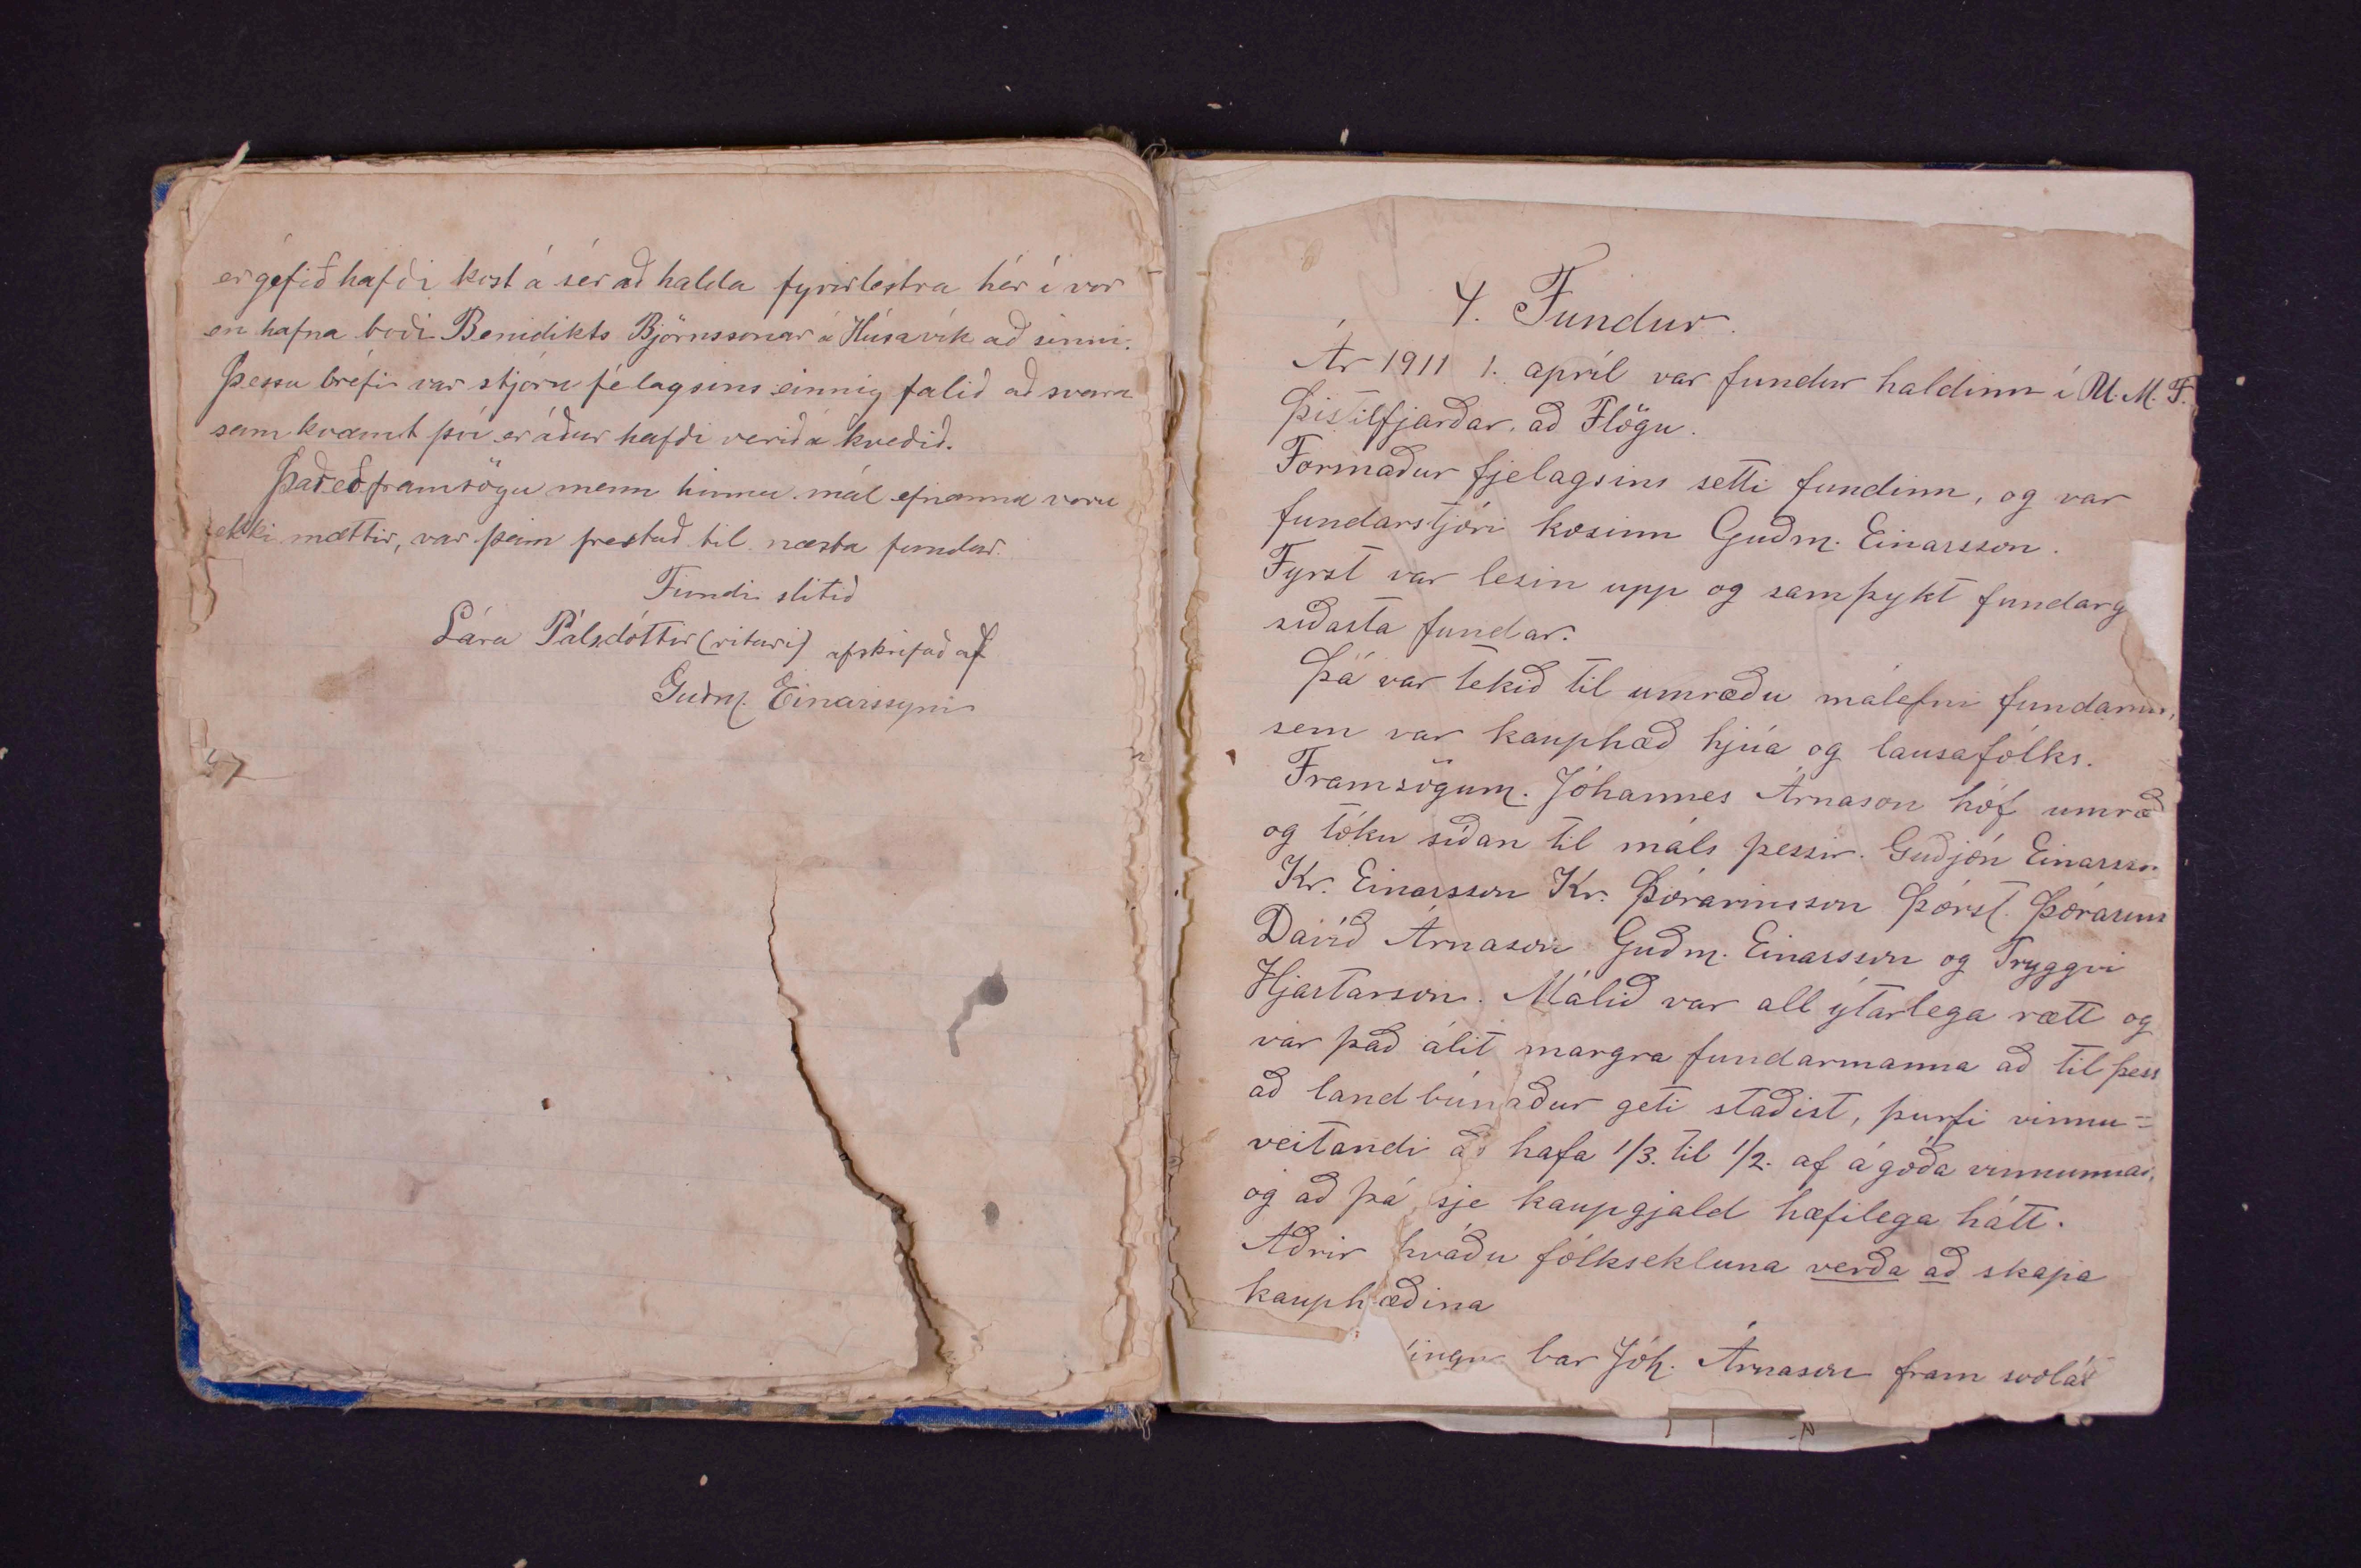 er gefið hafði kost á sér að halda fyrirlestra hér í vor
en hafna boði Benidikts Björnssonar á Húsavík að sinni.
Þessu bréfi var stjórn félagsins einnig falið að svara
samkvæmt því er áður hafði verið á kveðið.
Þareð framsögu menn hinna mál efnanna voru
ekki mættir, var þeim frestað til næsta fundar.
Fundi slitið
Lára Pálsdóttir (ritari) afskrifað af
Guðm. Einarssyni
4. Fundur.
Ár 1911 1. apríl var fundur haldinn í U. M. F.
Þistilfjarðar, að Flögu.
Formaður fjelagsins setti fundinn, og var
fundarstjóri kosinn Guðm. Einarsson.
Fyrst var lesin upp og samþykt fundarg
síðasta fundar.
Þá var tekið til umræðu málefni fundarins,
sem var kauphæð hjúa og lausafólks.
Framsögum. Jóhannes Árnason hóf umræð
og tóku síðan til máls þessir. Guðjón Einarsson
Kr. Einarsson Kr. Þórarinsson Þórst. Þórarins
Davíð Árnason Guðm. Einarsson og Tryggvi
Hjartarson. Málið var all ýtarlega rætt og
var það álit margra fundarmanna að til þess
að landbúnaður geti staðist, þurfi vinnu=
veitandi að hafa 1/3. til 1/2. af ágóða vinnunnar,
og að þá sje kaupgjald hæfilega hátt.
Aðrir kváðu fólksekluna verða að skapa
kauphæðina
ingu bar Jóh. Árnason fram svolát